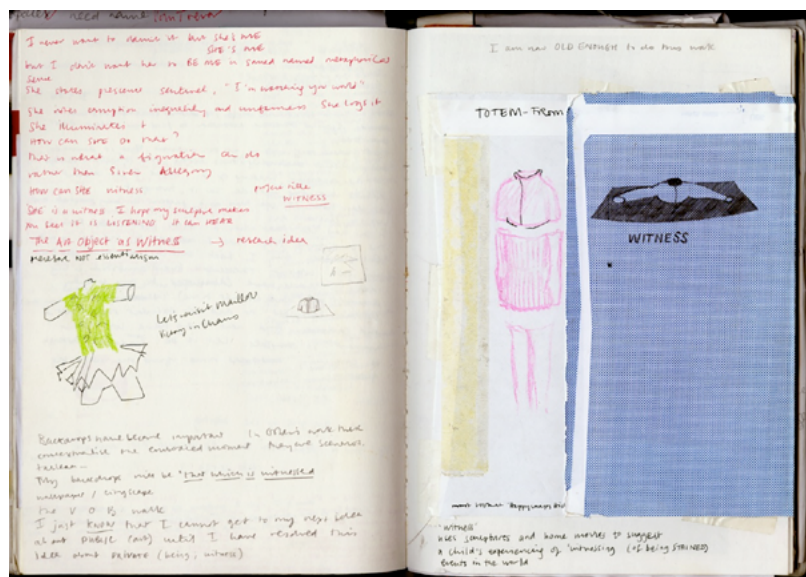 need name
I never want to name it but she's ME
SHE'S ME
but I don't want her to BE ME in samed named metaphorical
sense
She stores presence sentinel, "I'm watching you world"
She notes corruption inequality and unfairness She logs it
She illuminates it
HOW can SHE do that?
that is what a figuration can do
rather than Siren Allegory
How can SHE witness
project title
WITNESS
SHE is a witness I hope my sculpture makes
IT IS LISTENING it can HEAR
The Art Object as Witness → research idea
therefore NOT essentialism
Let's revisit
Backdrops have become important In work these
contextualise the moment They are scenarios,
tableau...
My backdrop will be "that which is witnessed
wallpaper / cityscape
the V O B walk
I just know that I cannot get to my next idea
about PUBLIC (art) until I have resolved this
idea about private (being, witness)
I am now OLD ENOUGH to do this work
TOTEM-From
WITNESS
'witness'
uses sculptures and home movies to suggest
a child's experiencing of 'witnessing' (of being STAINED)
events in the world